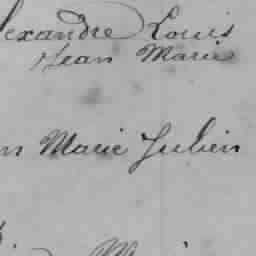 lexandre Louis
Jean Marie
n Marie Julien